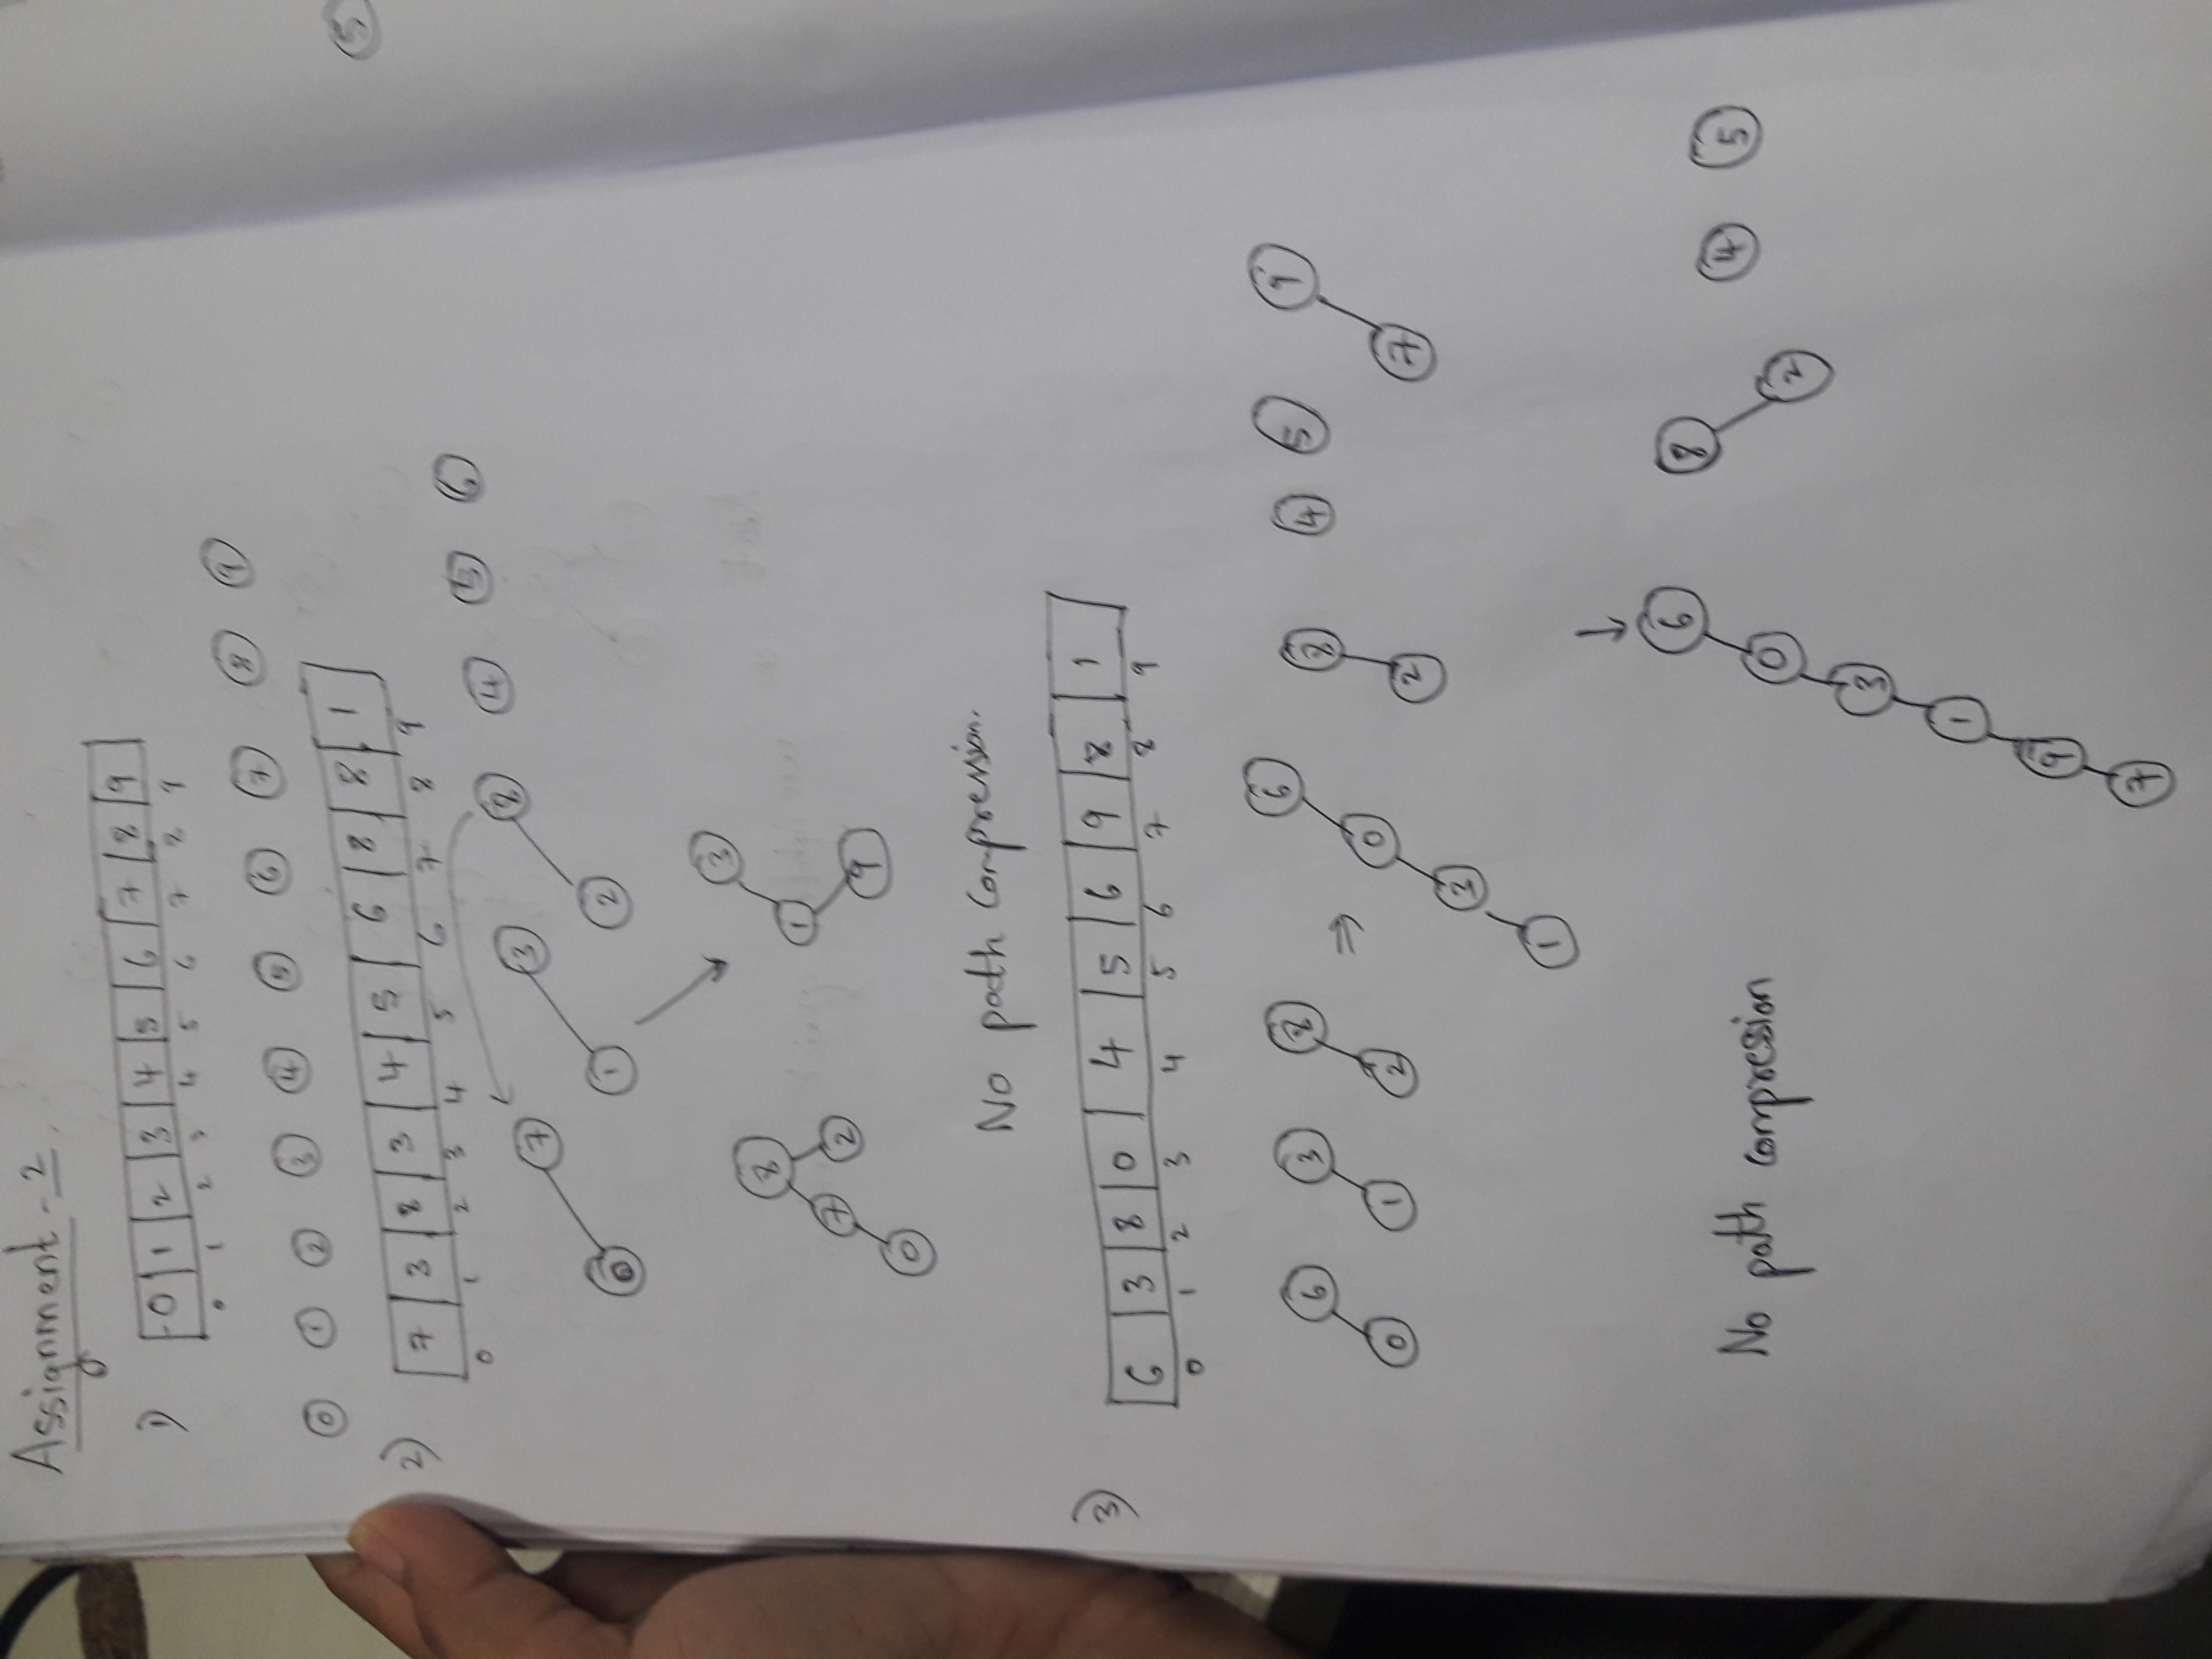 Assignment - 2
1) 0 1 2 3 4 5 6 7 8 9
0 1 2 3 4 5 6 7 8 9
0 1 2 3 4 5 6 7 8 9
2) 7 3 8 3 4 5 6 8 8 1
0 1 2 3 4 5 6 7 8 9
7 3 8 4 5 6
0 1 2
8 3
7 2 1
0 9
No path compression.
3) 6 3 8 0 4 5 6 9 8 1
0 1 2 3 4 5 6 7 8 9
6 3 8 ⇒ 6 8 4 5 9
0 1 2 0 2 7
3
1
6 8 4 5
No path compression
0 2
3
1
9
7
5